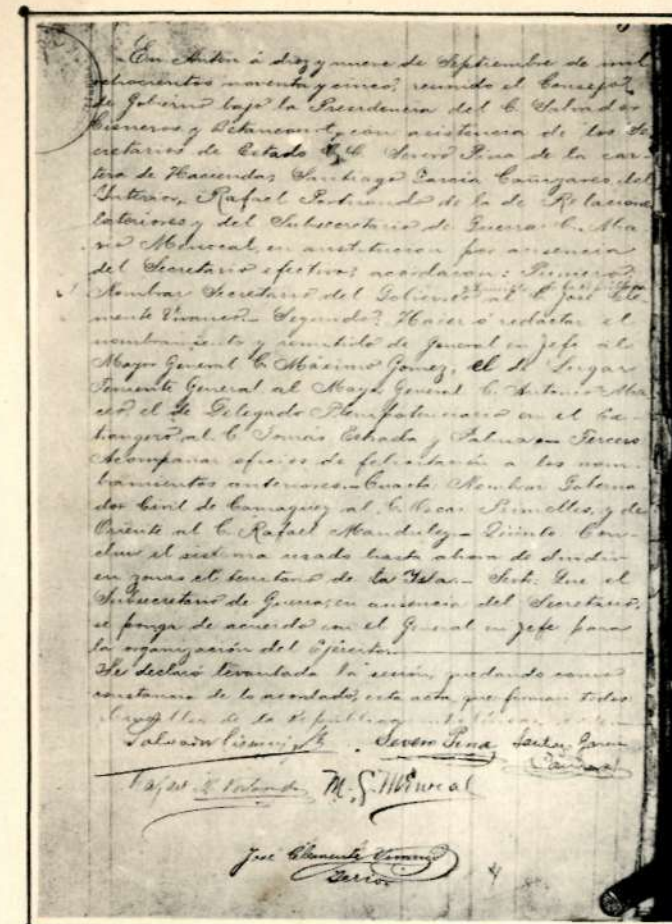 En Anton á diez y nueve de Septiembre de mil
ochocientos noventa y cinco, reunido el Consejo
de Gobierno bajo la Presidencia del C. Salvador
Cisneros y Betancourt, con asistencia de los Se-
cretarios de Estado C. Severo Pina de la car-
tera de Hacienda, Santiago García Cañizares del
Interior, Rafael Portuondo de la de Relaciones
Exteriores y del Subsecretario de Guerra C. Ma-
rio Menocal, en sustitucion por ausencia
del Secretario efectivo; acordaron: Primero:
Nombrar Secretario del Gobierno al C. José Cle-
mente Vivanco. Segundo: Hacer ó redactar el
nombramiento y remitirlo de General en Jefe al
Mayor General C. Máximo Gomez, el de Lugar
Teniente General al Mayor General C. Antonio Ma-
ceo, el de Delegado Plenipotenciario en el Ex-
trangero al C. Tomás Estrada y Palma. Tercero
Acompañar oficios de felicitación a los nom-
bramientos anteriores. Cuarto: Nombrar Goberna-
dor Civil de Camagüey al C. Oscar Primelles, y de
Oriente al C. Rafael Manduley. Quinto: Con-
cluir el sistema usado hasta ahora de dividir
en zonas el territorio de la Isla. Sesto: Que el
Subsecretario de Guerra, en ausencia del Secretario,
se ponga de acuerdo con el General en Jefe para
la organización del Ejército.
Se declaró levantada la sesión, quedando como
constancia de lo acordado, esta acta, que firman todos
de la República
Salvador Cisneros B. Severo Pina Santiago García
Cañizares
Rafael M. Portuondo M. G. Menocal
José Clemente Vivanco
Serio